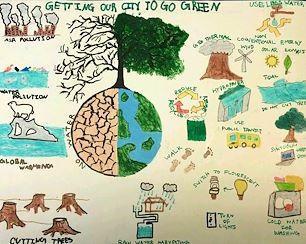 GETTING OUR CITY TO GO GREEN
AIR POLLUTION
WATER
POLLUTION
GLOBAL
WARMING
CUTTING TREES
NO WATER
USE LESS WATER
NON
CONVENTIONAL ENERGY
GEO THERMAL
WIND
SOLAR
BIOGAS
TIDAL
HYDROPOWER
DO NOT CUT TREES
REDUCE
USE
PUBLIC TRANSIT
WALK
SWITCH TO FLUORESCENT
TURN
OF
LIGHTS
COLD WATER
FOR
WASHING
RAIN WATER HARVESTING